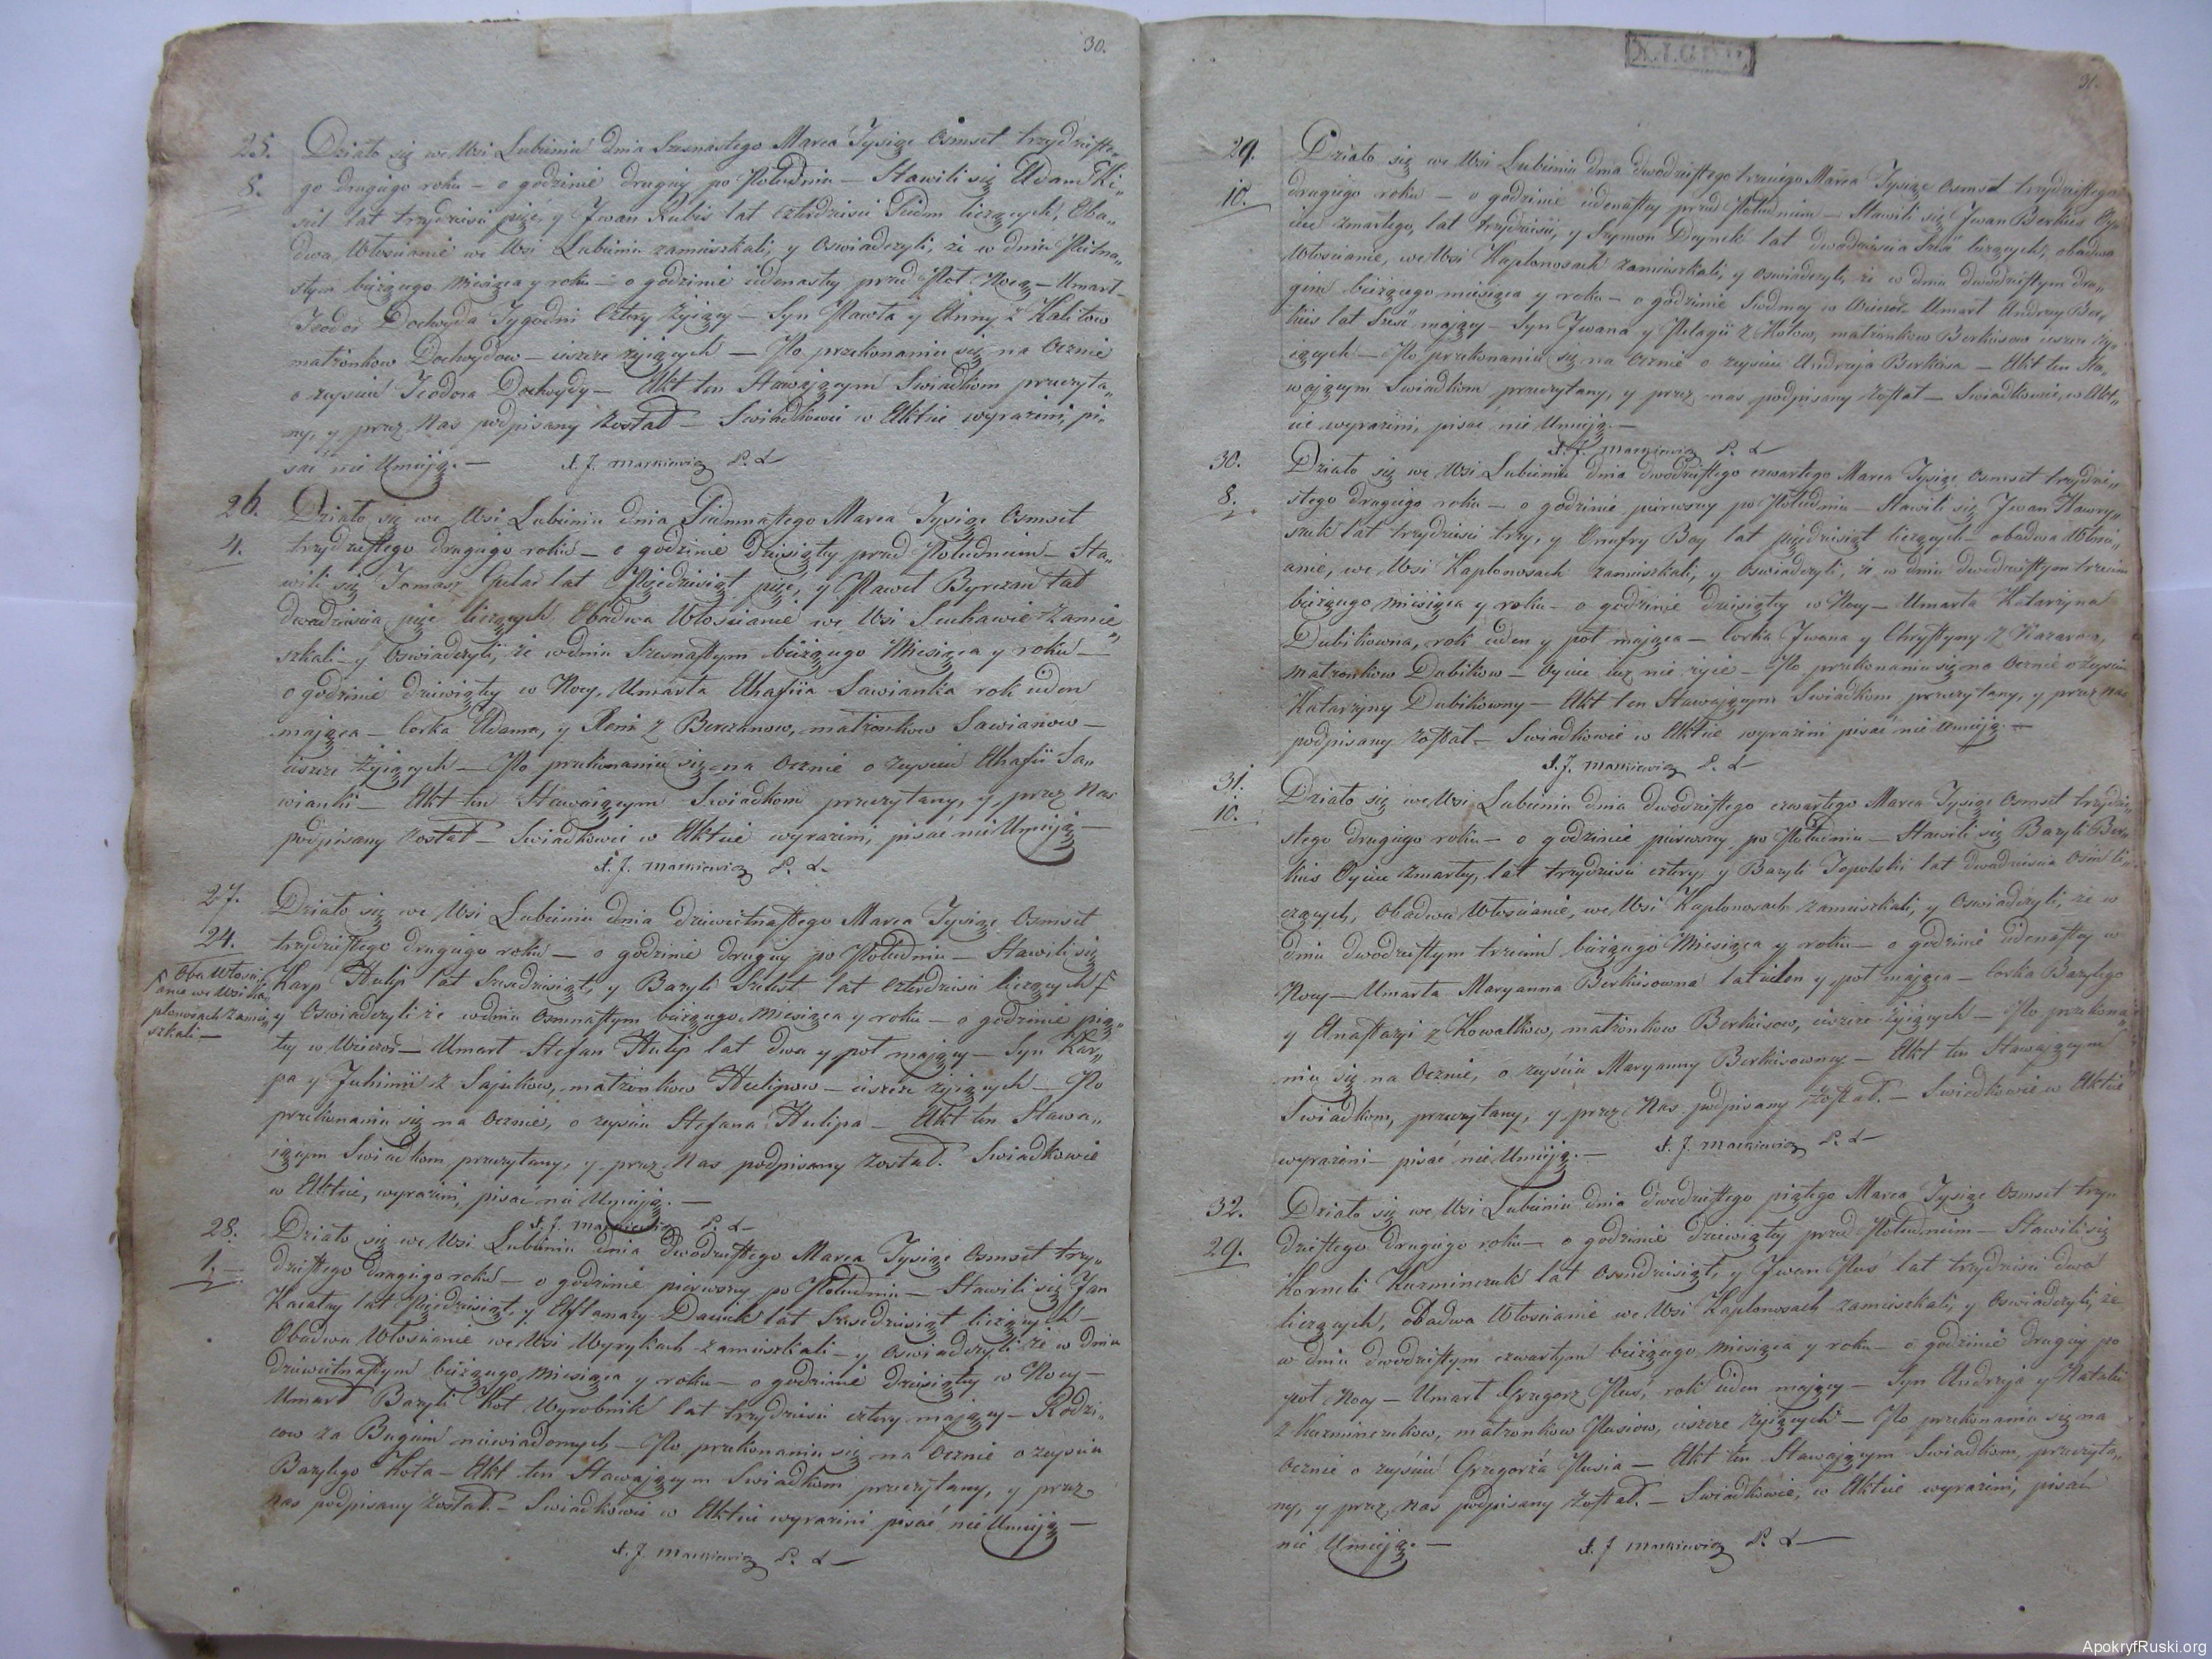 30.
25.
8.
Działo się we Wsi Lubieniu dnia Szesnastego Marca Tysiąc Osmset trzydzieste„
go drugiego roku — o godzinie drugiey po Południu — Stawili się Adam
lat trzydzieści pięć, y Iwan Kubis lat czterdzieści Siedm liczących, Oba„
dwa Włościanie we Wsi Lubieniu zamieszkali, y Oswiadczyli, że w dniu Pietna„
stym bieżącego Miesiąca y roku — o godzinie iedenastey przed Pół Nocą — Umart
Teodor Dochwyda Tygodni Cztery żyiący — Syn Pawła y Anny z Kalitow
małzonkow Dochwydow — ieszcze żyiących — Po przekonaniu się na Ocznie
o zeysciu Teodora Dochwydy — Akt ten Stawaiącym Swiadkom przeczyta„
ny, y przez Nas podpisany został — Swiadkowie w Akcie wyrazeni, pi„
sać nie Umieją. — X. J. Markiewicz P. L.
26.
4.
Działo się we Wsi Lubieniu dnia Siedmnastego Marca Tysiąc Osmset
trzydziestego drugiego roku — o godzinie Dziesiątey przed Południem — Sta„
wili się Tomasz lat Pięcdziesiąt pięć, y Paweł Byrczan lat
dwadzieścia pięć liczących Obadwa Włościanie we Wsi Suchawie zamie„
szkali — y Oswiadczyli, że w dniu Szesnastym bieżącego Miesiąca y roku —
o godzinie dziewiątey w Nocy, Umarła Ahafiia Sawianka rok ieden
maiąca — Corka Adama, y Reni z Berczanow, małzonkow Sawianow —
ieszcze żyiących — Po przekonaniu się na Ocznie o zeysciu Ahafii Sa„
wianki — Akt ten Stawaiącym Swiadkom przeczytany, y przez Nas
podpisany został — Swiadkowie w Akcie wyrazeni, pisać nie Umieją —
X. J. Markiewicz P. L.
27.
24.
Działo się we Wsi Lubieniu dnia dziewietnastego Marca Tysiąc Osmset
trzydziestego drugiego roku — o godzinie drugiey po Południu — Stawili się
Karp Hulip lat Szesdziesiąt, y Bazyli Szelest lat czterdzieści liczących
Oba Włosci„
anie we Wsi Ka„
plonosach zamie„
szkali —
y Oswiadczyli że w dniu Osmnastym bieżącego Miesiąca y roku — o godzinie pią„
tey w Wieczor — Umarł Stefan Hulip lat dwa y pół maiący — Syn Kar„
pa y Juhimii z Sajukow, małzonkow Hulipow — ieszcze żyiących — Po
przekonaniu się na Ocznie, o zeysciu Stefana Hulipa — Akt ten Stawa„
iącym Swiadkom przeczytany, y przez Nas podpisany został. Swiadkowie
w Akcie, wyrazeni, pisać nie Umieją. —
X. J. Markiewicz P. L.
28.
1.
Działo się we Wsi Lubieniu dnia Dwodziestego Marca Tysiąc Osmset trzy„
dziestego drugiego roku — o godzinie pierwszey po Południu — Stawili się Jan
lat Pięcdziesiąt, y lat Szesdziesiąt liczących —
Obadwa Włościanie we Wsi Wyrykach zamieszkali — y Oswiadczyli że w dniu
dziewietnastym bieżącego Miesiąca y roku — o godzinie dziesiątey w Nocy —
Umarł Bazyli Kot Wyrobnik lat trzydzieści cztery maiący — Rodzi„
cow za Bugiem niewiadomych — Po przekonaniu się na Ocznie o zeysciu
Bazylego Kota — Akt ten Stawaiącym Swiadkom przeczytany, y przez
nas podpisany został. — Swiadkowie w Akcie wyrazeni pisać nie Umieją —
X. J. Markiewicz P. L.
31.
29.
10.
Działo się we Wsi Lubieniu dnia dwodziestego trzeciego Marca Tysiąc Osmset trzydziestego
drugiego roku — o godzinie iedenastey przed Południem — Stawili się Iwan Berkies Oy„
ciec zmarłego, lat trzydzieści, y Szymon Deynek lat dwadzieścia Sześć liczących, obadwa
Włościanie, we Wsi Kaplonosach zamieszkali, y Oswiadczyli, że w dniu dwodziestym dru„
gim bieżącego miesiąca y roku — o godzinie Siodmey w Wieczor Umarł Andrzey Ber„
kies lat Sześć maiący — Syn Iwana y Pelagii z Kotow, małzonkow Berkiesow ieszcze ży„
iących — Po przekonaniu się na Ocznie o zeysciu Andrzeja Berkiesa — Akt ten Sta„
waiącym Swiadkom przeczytany, y przez nas podpisany został — Swiadkowie, w Ak„
cie wyrazeni, pisać nie Umieją. —
X. J. Markiewicz P. L.
30.
8.
Działo się we Wsi Lubieniu dnia dwodziestego czwartego Marca Tysiąc Osmset trzydzie„
stego drugiego roku — o godzinie pierwszey po Południu — Stawili się Iwan Hawry„
szuk lat trzydzieści trzy, y Onufry Bay lat pięcdziesiąt liczących — obadwa Włosci„
anie, we Wsi Kaplonosach zamieszkali, y Oswiadczyli, że w dniu dwodziestym trzecim
bieżącego Miesiąca y roku — o godzinie dziesiątey w Nocy — Umarła Katarzyna
Dubikowna, rok ieden y pół maiąca — Corka Iwana y Chrystyny z
małzonkow Dubikow — Oyciec iuż nie żyie — Po przekonaniu się na Ocznie o zeysciu
Katarzyny Dubikowny — Akt ten Stawaiącym Swiadkom przeczytany, y przez nas
podpisany został — Swiadkowie w Akcie wyrazeni pisać nie Umieją. —
X. J. Markiewicz P. L.
31.
10.
Działo się we Wsi Lubieniu dnia dwodziestego czwartego Marca Tysiąc Osmset trzydzie„
stego drugiego roku — o godzinie pierwszey po Południu — Stawili się Bazyli Ber„
kies Oyciec zmarłey, lat trzydzieści cztery, y Bazyli Topolski lat dwadzieścia Osm li„
czących, Obadwa Włościanie, we Wsi Kaplonosach zamieszkali, y Oswiadczyli, że w
dniu dwodziestym trzecim bieżącego Miesiąca y roku — o godzinie iedenastey w
Nocy — Umarła Maryanna Berkiesowna lat ieden y pół maiąca — Corka Bazylego
y Anastazyi z Kowalkow, małzonkow Berkiesow, ieszcze żyiących — Po przekona„
niu się na Ocznie, o zeysciu Maryanny Berkiesowney — Akt ten Stawaiącym
Swiadkom, przeczytany, y przez Nas podpisany został. — Swiadkowie w Akcie
wyrazeni — pisać nie Umieją. — X. J. Markiewicz P. L.
32.
29.
Działo się we Wsi Lubieniu dnia dwodziestego piątego Marca Tysiąc Osmset trzy„
dziestego drugiego roku — o godzinie dziewiątey przed Południem — Stawili się
Korneli Kuzminczuk lat Osmdziesiąt, y Iwan Pluś lat trzydzieści dwa
liczących, obadwa Włościanie we Wsi Kaplonosach zamieszkali, y Oswiadczyli, że
w dniu dwodziestym czwartym bieżącego miesiąca y roku — o godzinie drugiey po
pół Nocy — Umarł Grzegorz Pluś, rok ieden maiący — Syn Andrzeja y Natalii
z Kuzminczukow, małzonkow Plusiow, ieszcze żyiących — Po przekonaniu się na
Ocznie o zeysciu Grzegorza Plusia — Akt ten Stawaiącym Swiadkom, przeczyta„
ny, y przez nas podpisany został. — Swiadkowie, w Akcie wyrazeni, pisać
nie Umieją. — X. J. Markiewicz P. L.
ApokryfRuski.org